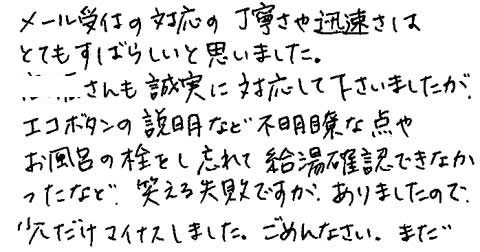 メール受付の対応の丁寧さや迅速さは
とてもすばらしいと思いました。
さんも誠実に対応して下さいましたが、
エコボタンの説明など不明瞭な点や
お風呂の栓をし忘れて給湯確認できなか
ったなど、笑える失敗ですが、ありましたので、
少しだけマイナスしました。ごめんなさい。まだ